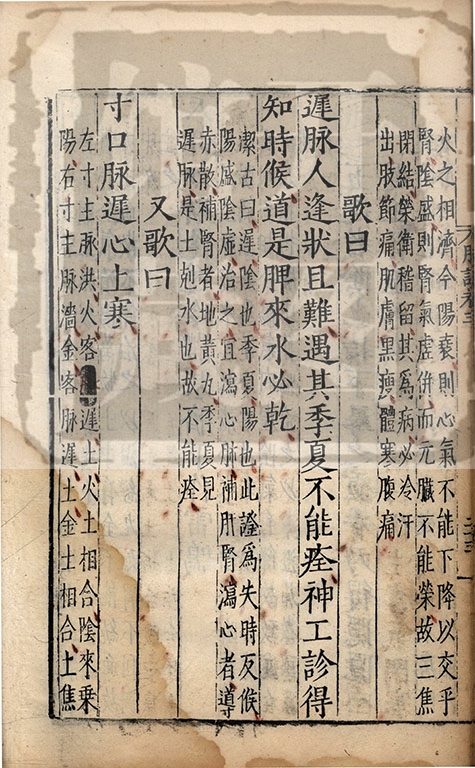 火之相濟今陽衰則心氣不能下降以交乎
腎陰盛則腎氣虛併而元臟不能榮故三焦
閉結榮衛稽留其為病必冷汗
出肢節痛肌膚黑瘦體寒腹痛
歌曰
遲脉人逢狀且難遇其季夏不能痊神工診得
知時候道是脾來水必乾
潔古曰遲陰也季夏陽也此證為失時反候
陽盛陰虛治之宜瀉心脉補肝腎瀉心者導
赤散補腎者地黃丸季夏見
遲脉是土剋水也故不能痊
又歌曰
寸口脉遲心上寒
左寸主脉洪火客遲土火土相合陰來乗
陽右寸主脉濇金客脉遲土金土相合土焦